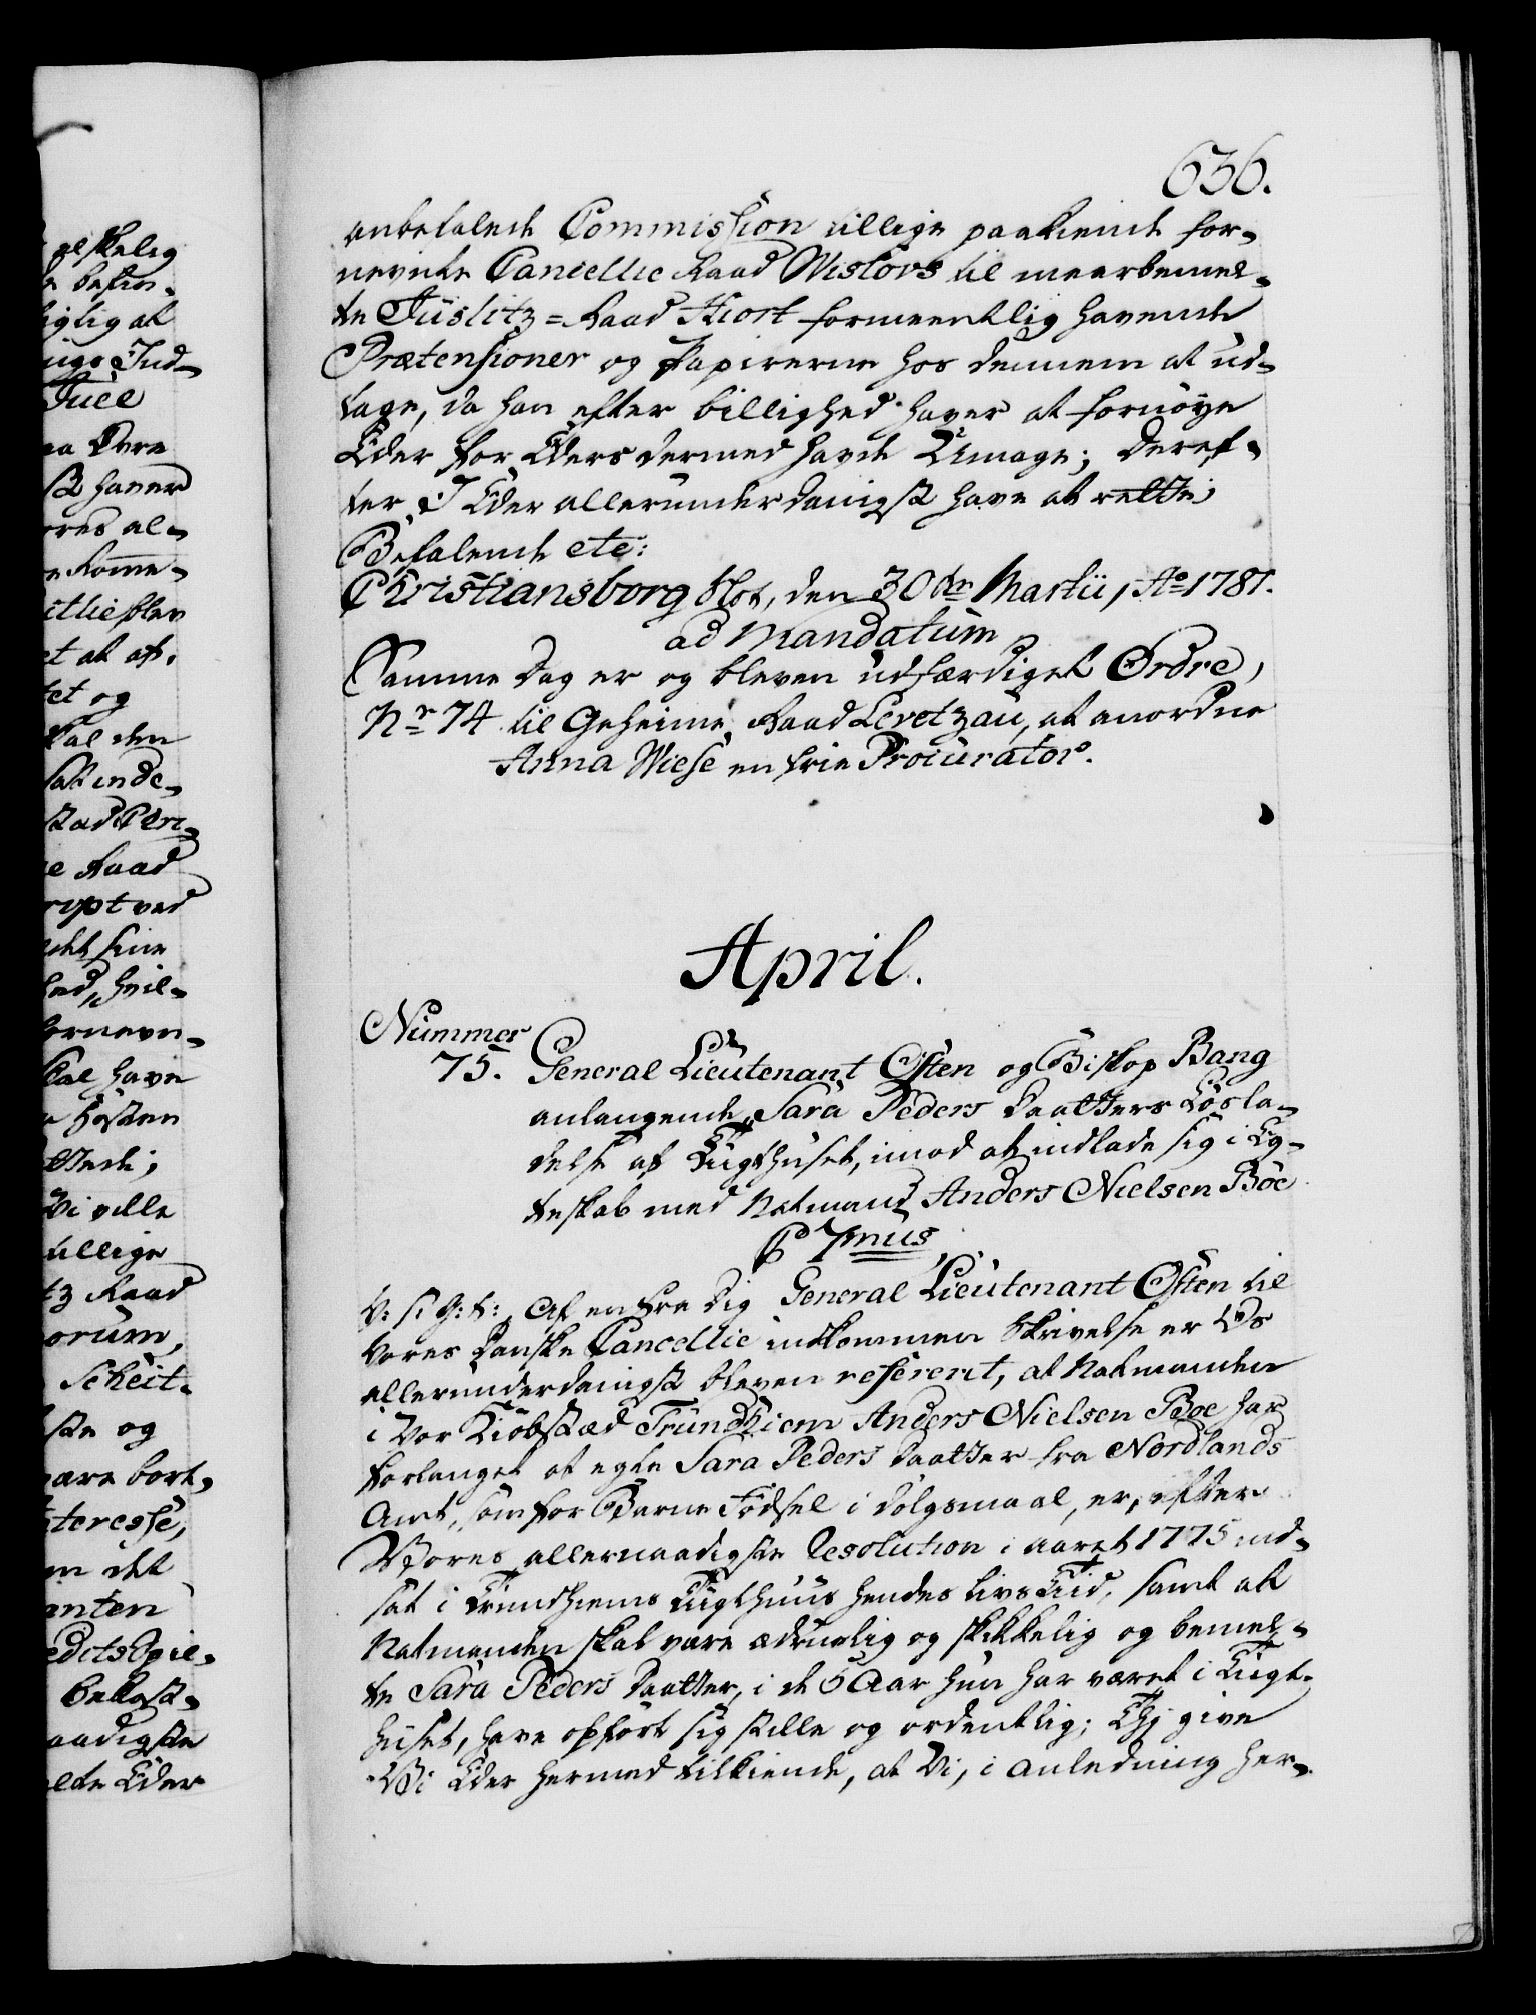 636.
anbefalende Commission tillige paakiende for-
nevnte Cancellie Raad Wislövs til meerbemel-
te Justitz=Raad Hiort formeentlig havende
Prætensioner og Papirerne hos dennem at ud-
tage, da han efter billighed haver at fornöye
Eder for Eders dermed havde Umage; Deref-
ter I Eder allerunderdanigst have at rette;
Befalende etc:
Christiansborg Slot, den 30te Martii, Ao 1781.
ad Mandatum
Samme Dag er og bleven udfærdiget Ordre,
Nr 74 til Geheime Raad Levetzau, at anordne
Anna Wiese en frie Procurator.
April.
Nummer
75. General Lieutenant Osten og Biskop Bang
anlangende Sara Peders Daatters Lösla-
delse af Tugthuset, imod at indlade sig i Eg-
teskab med Natmand Anders Nielsen Böe
C 7mus
V: s: G: t: Af en fra Dig General Lieutenant Osten til
Vores Danske Cancellie indkommen Skrivelse er Os
allerunderdanigst bleven refereret, at Natmanden
i Vor Kiöbstæd Trundhiem Anders Nielsen Boe har
forlanget at egte Sara Peders Daatter fra Nordlands
Amt, som for Barne Födsel i Dölgsmaal, er, efter
Vores allernaadigste Resolution i Aaret 1775 ind-
sat i Trundhiems Tugthuus hendes Livs Tid, samt at
Natmanden skal være ædruelig og skikkelig og bemel-
te Sara Peders Daatter, i de 6 Aar hun har været i Tugt-
huset, have opfört sig stille og ordentlig; Thi give
Vi Eder hermed tilkiende, at Vi, i Anledning her-
ælskelig
Juel
haver
et og
Raad
Vi ville
tillige
Raad
orum,
og
det
naadigste
Eder